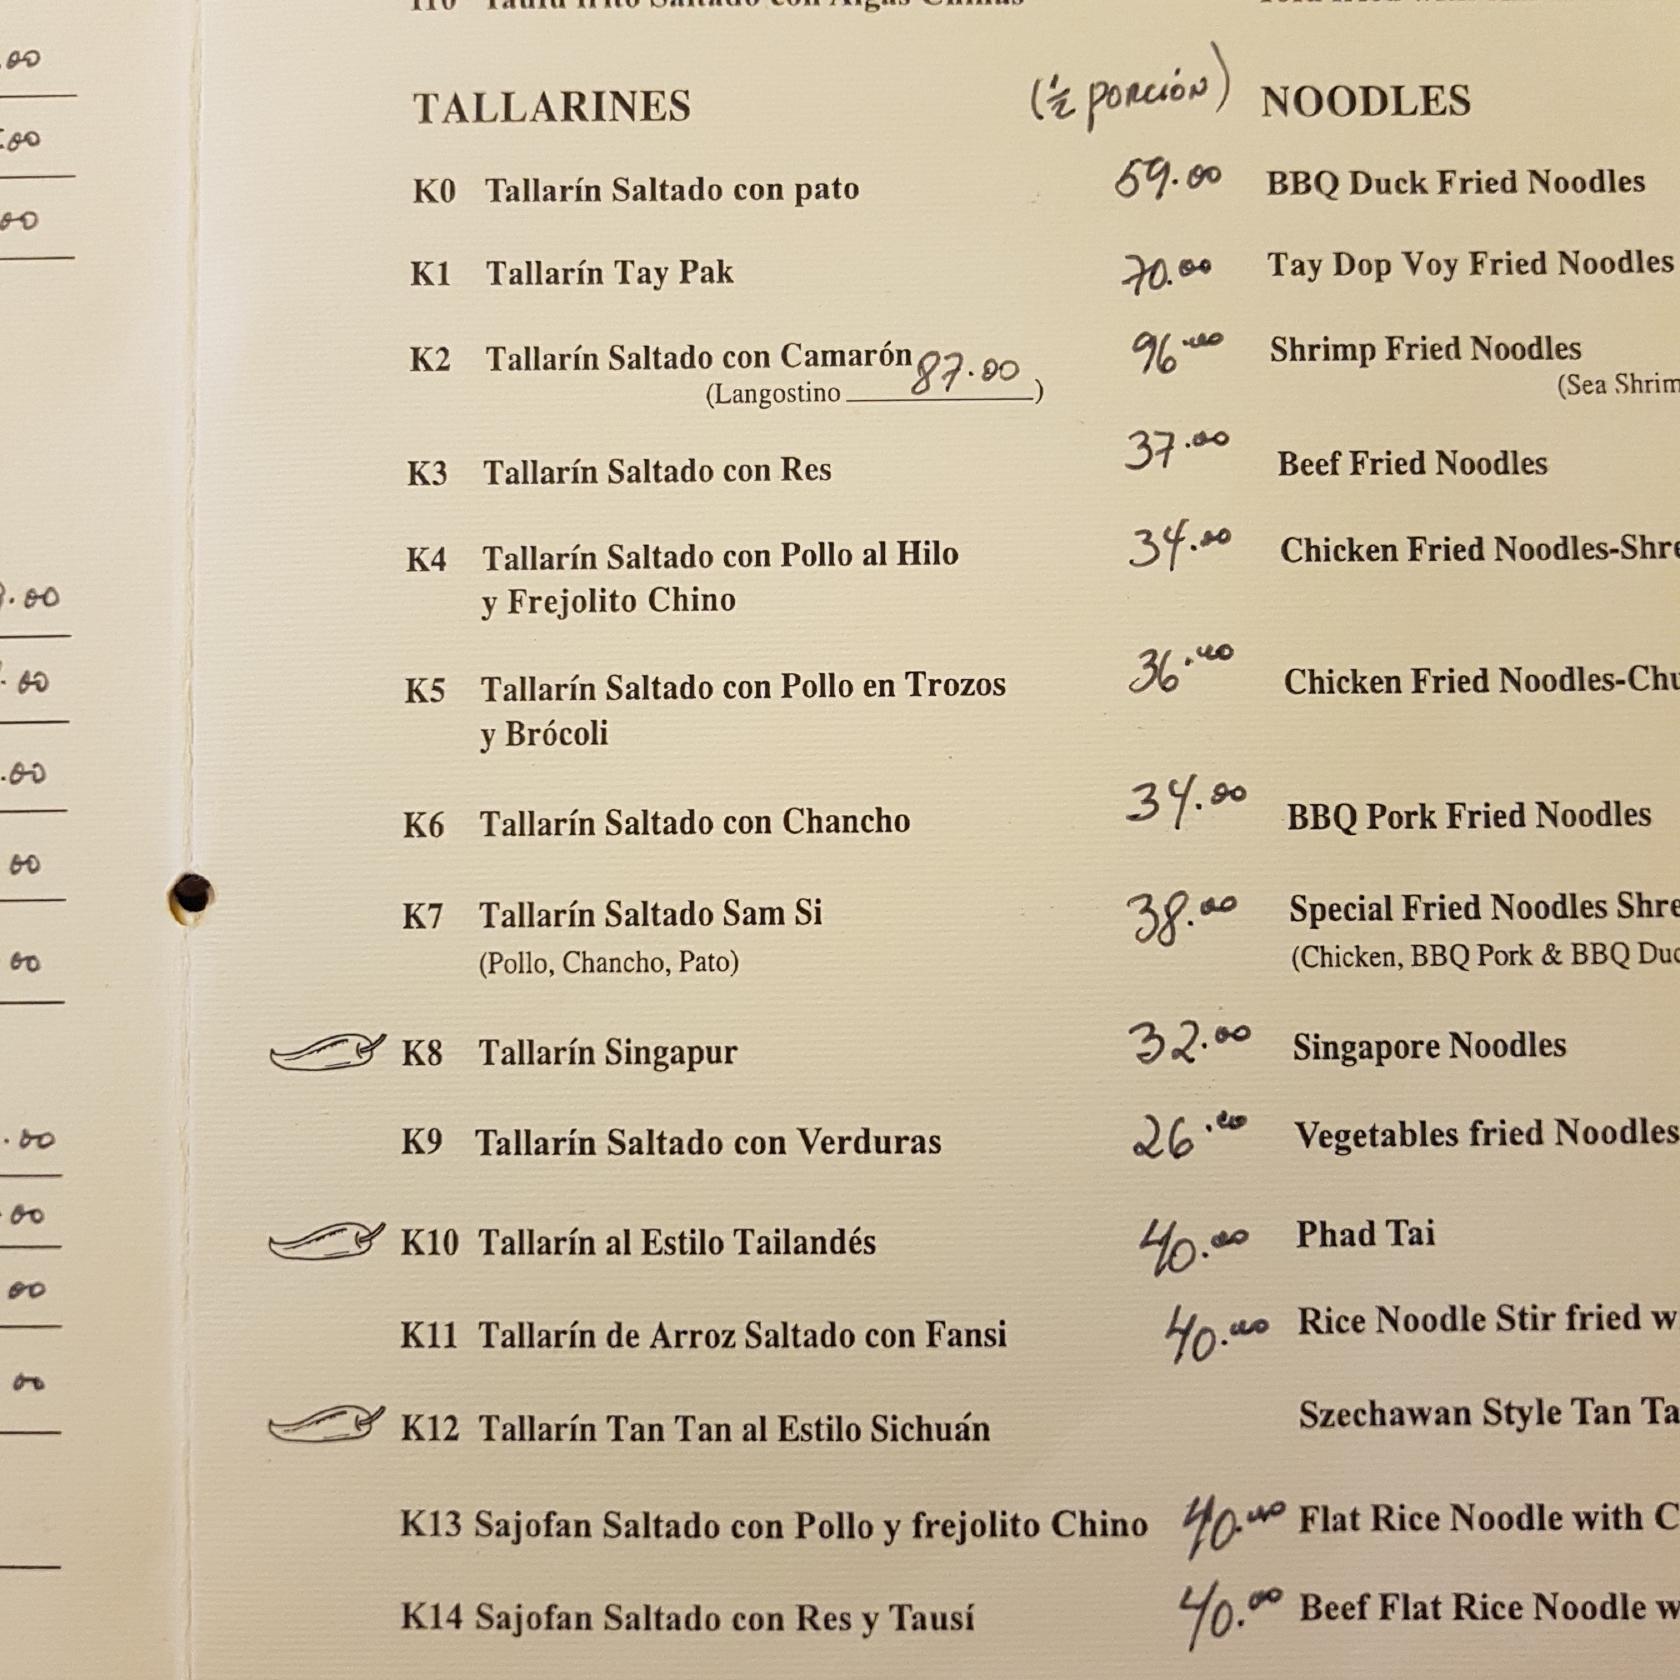 TALLARINES (½ PORCIÓN) NOODLES
K0 Tallarín Saltado con pato 59.00 BBQ Duck Fried Noodles
K1 Tallarín Tay Pak 70.00 Tay Dop Voy Fried Noodles
K2 Tallarín Saltado con Camarón 96.00 Shrimp Fried Noodles
(Langostino 87.00) (Sea Shrim
K3 Tallarín Saltado con Res 37.00 Beef Fried Noodles
K4 Tallarín Saltado con Pollo al Hilo 34.00 Chicken Fried Noodles-Shre
y Frejolito Chino
K5 Tallarín Saltado con Pollo en Trozos 36.00 Chicken Fried Noodles-Chu
y Brócoli
K6 Tallarín Saltado con Chancho 34.00 BBQ Pork Fried Noodles
K7 Tallarín Saltado Sam Si 38.00 Special Fried Noodles Shre
(Pollo, Chancho, Pato) (Chicken, BBQ Pork & BBQ Duc
K8 Tallarín Singapur 32.00 Singapore Noodles
K9 Tallarín Saltado con Verduras 26.00 Vegetables fried Noodles
K10 Tallarín al Estilo Tailandés 40.00 Phad Tai
K11 Tallarín de Arroz Saltado con Fansi 40.00 Rice Noodle Stir fried w
K12 Tallarín Tan Tan al Estilo Sichuán Szechawan Style Tan Ta
K13 Sajofan Saltado con Pollo y frejolito Chino 40.00 Flat Rice Noodle with C
K14 Sajofan Saltado con Res y Tausí 40.00 Beef Flat Rice Noodle w